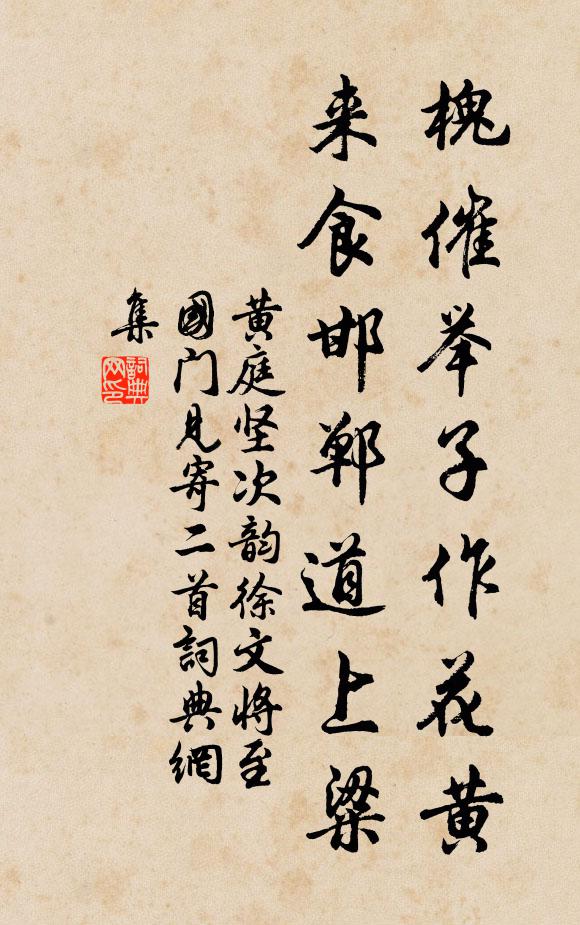 槐催举子作花黄
来食邯郸道上粱
黄庭坚次韵徐文将至
國门見寄二首詞典網
集
詞典
网印